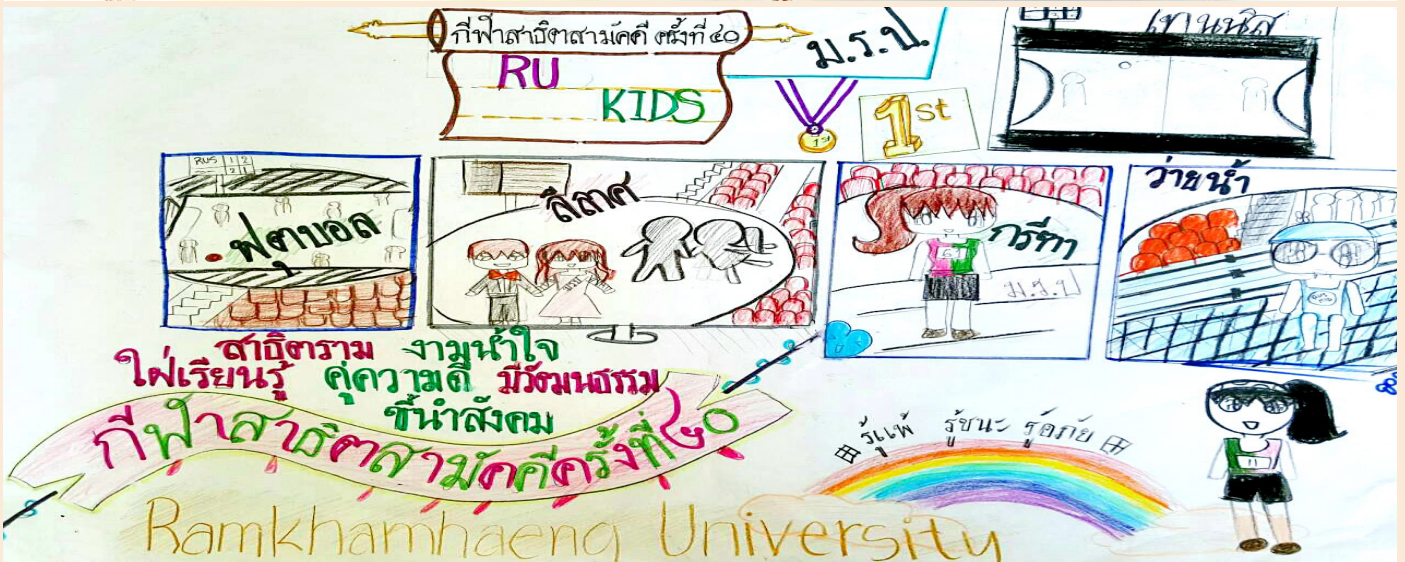 กีฬาสาธิตสามัคคี ครั้งที่ ๔๐
RU
KIDS
ม.ร.ป.
1st
1st
เทนนิส
RUS 1 2
2 1
ฟุตบอล
ลีลาศ
กรีฑา
ม.ร.ป
ว่ายน้ำ
สาธิตราม งามน้ำใจ
ใฝ่เรียนรู้ คู่ความดี มีวัฒนธรรม
ชี้นำสังคม
กีฬาสาธิตสามัคคีครั้งที่ ๔๐
รู้แพ้ รู้ชนะ รู้อภัย
11
Ramkhamhaeng University